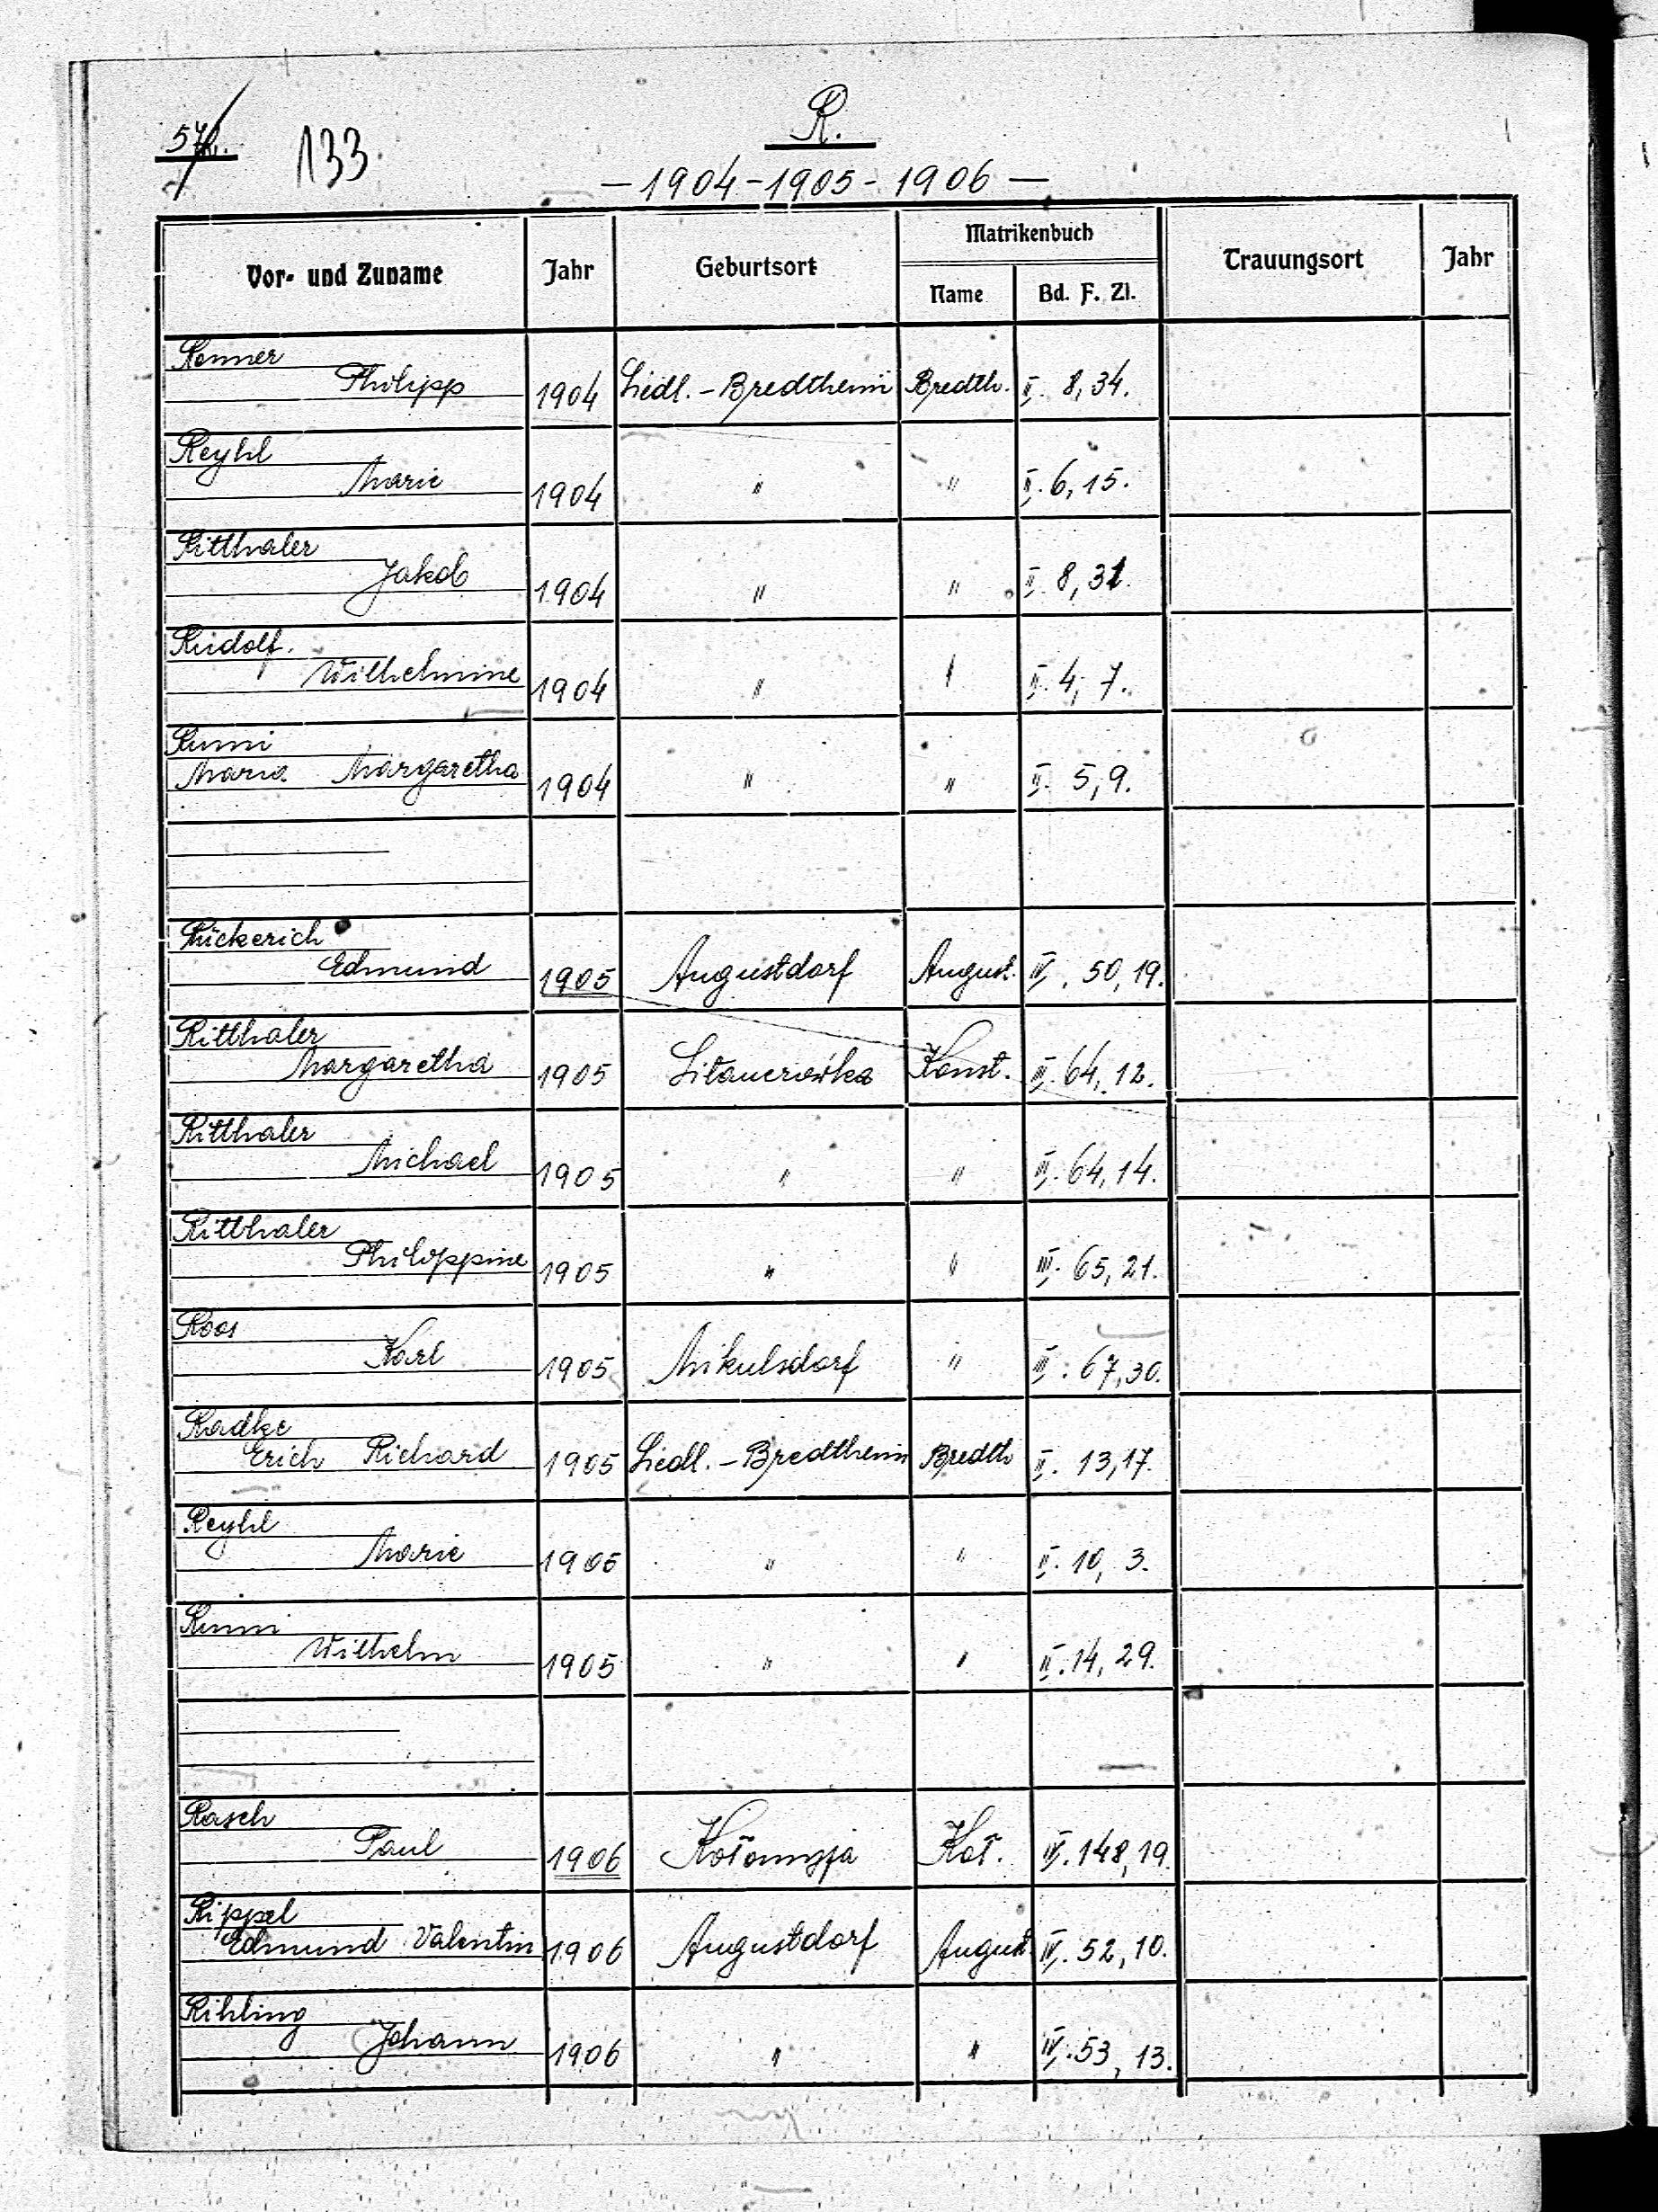 R.
133
— 1904 - 1905 - 1906 —
Matrikenbuch
Vor- und Zuname Jahr Geburtsort Name Bd. F. Zl. Trauungsort Jahr
Renner
Philipp 1904 Siedl. - Bredtheim Bredth. II. 8, 34.
Reyhl
Marie 1904 " " II. 6, 15.
Ritthaler
Jakob 1904 " " II. 8, 31.
Rudolf.
Wilhelmine 1904 " " II. 4, 7.
Rumi
Maria Margaretha 1904 " " II. 5, 9.
Rückerich
Edmund 1905 Augustdorf August. IV. 50, 19.
Ritthaler
Margaretha 1905 Sitauerówka Konst. III. 64, 12.
Ritthaler
Michael 1905 " " III. 64, 14.
Ritthaler
Philippine 1905 " " III. 65, 21.
Roos
Karl 1905 Mikulsdorf " III. 67, 30.
Radke
Erich Richard 1905 Siedl. - Bredtheim Bredth II. 13, 17.
Reyhl
Marie 1905 " " II. 10, 3.
Rumi
Wilhelm 1905 " " II. 14, 29.
Rasch
Paul 1906 Kołomyja Koł. IV. 148, 19.
Rippel
Edmund Valentin 1906 Augustdorf August IV. 52, 10.
Rihling
Johann 1906 " " IV. 53, 13.